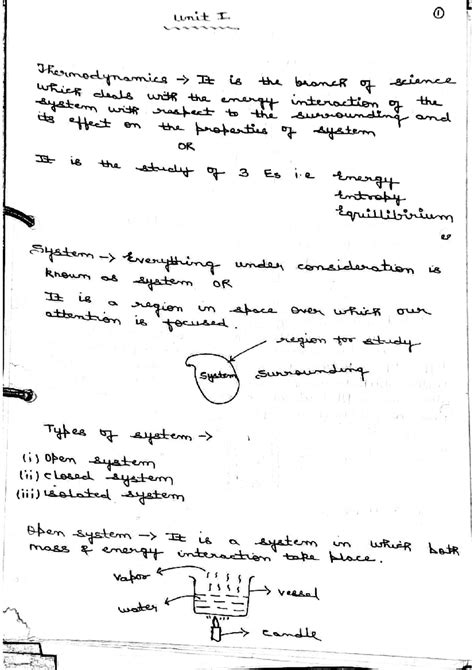 Unit I.
①
Thermodynamics → It is the branch of science
which deals with the energy interaction of the
system with respect to the surrounding and
its effect on the properties of system
OR
It is the study of 3 Es i.e Energy
Entropy
Equillibirium
System → Everything under consideration is
known as system OR
It is a region in space over which our
attention is focused.
region for study
System
Surrounding
Types of system →
(i) Open system
(ii) closed system
(iii) isolated system
Open system → It is a system in which both
mass & energy interaction take place.
vapor
vessel
water
candle